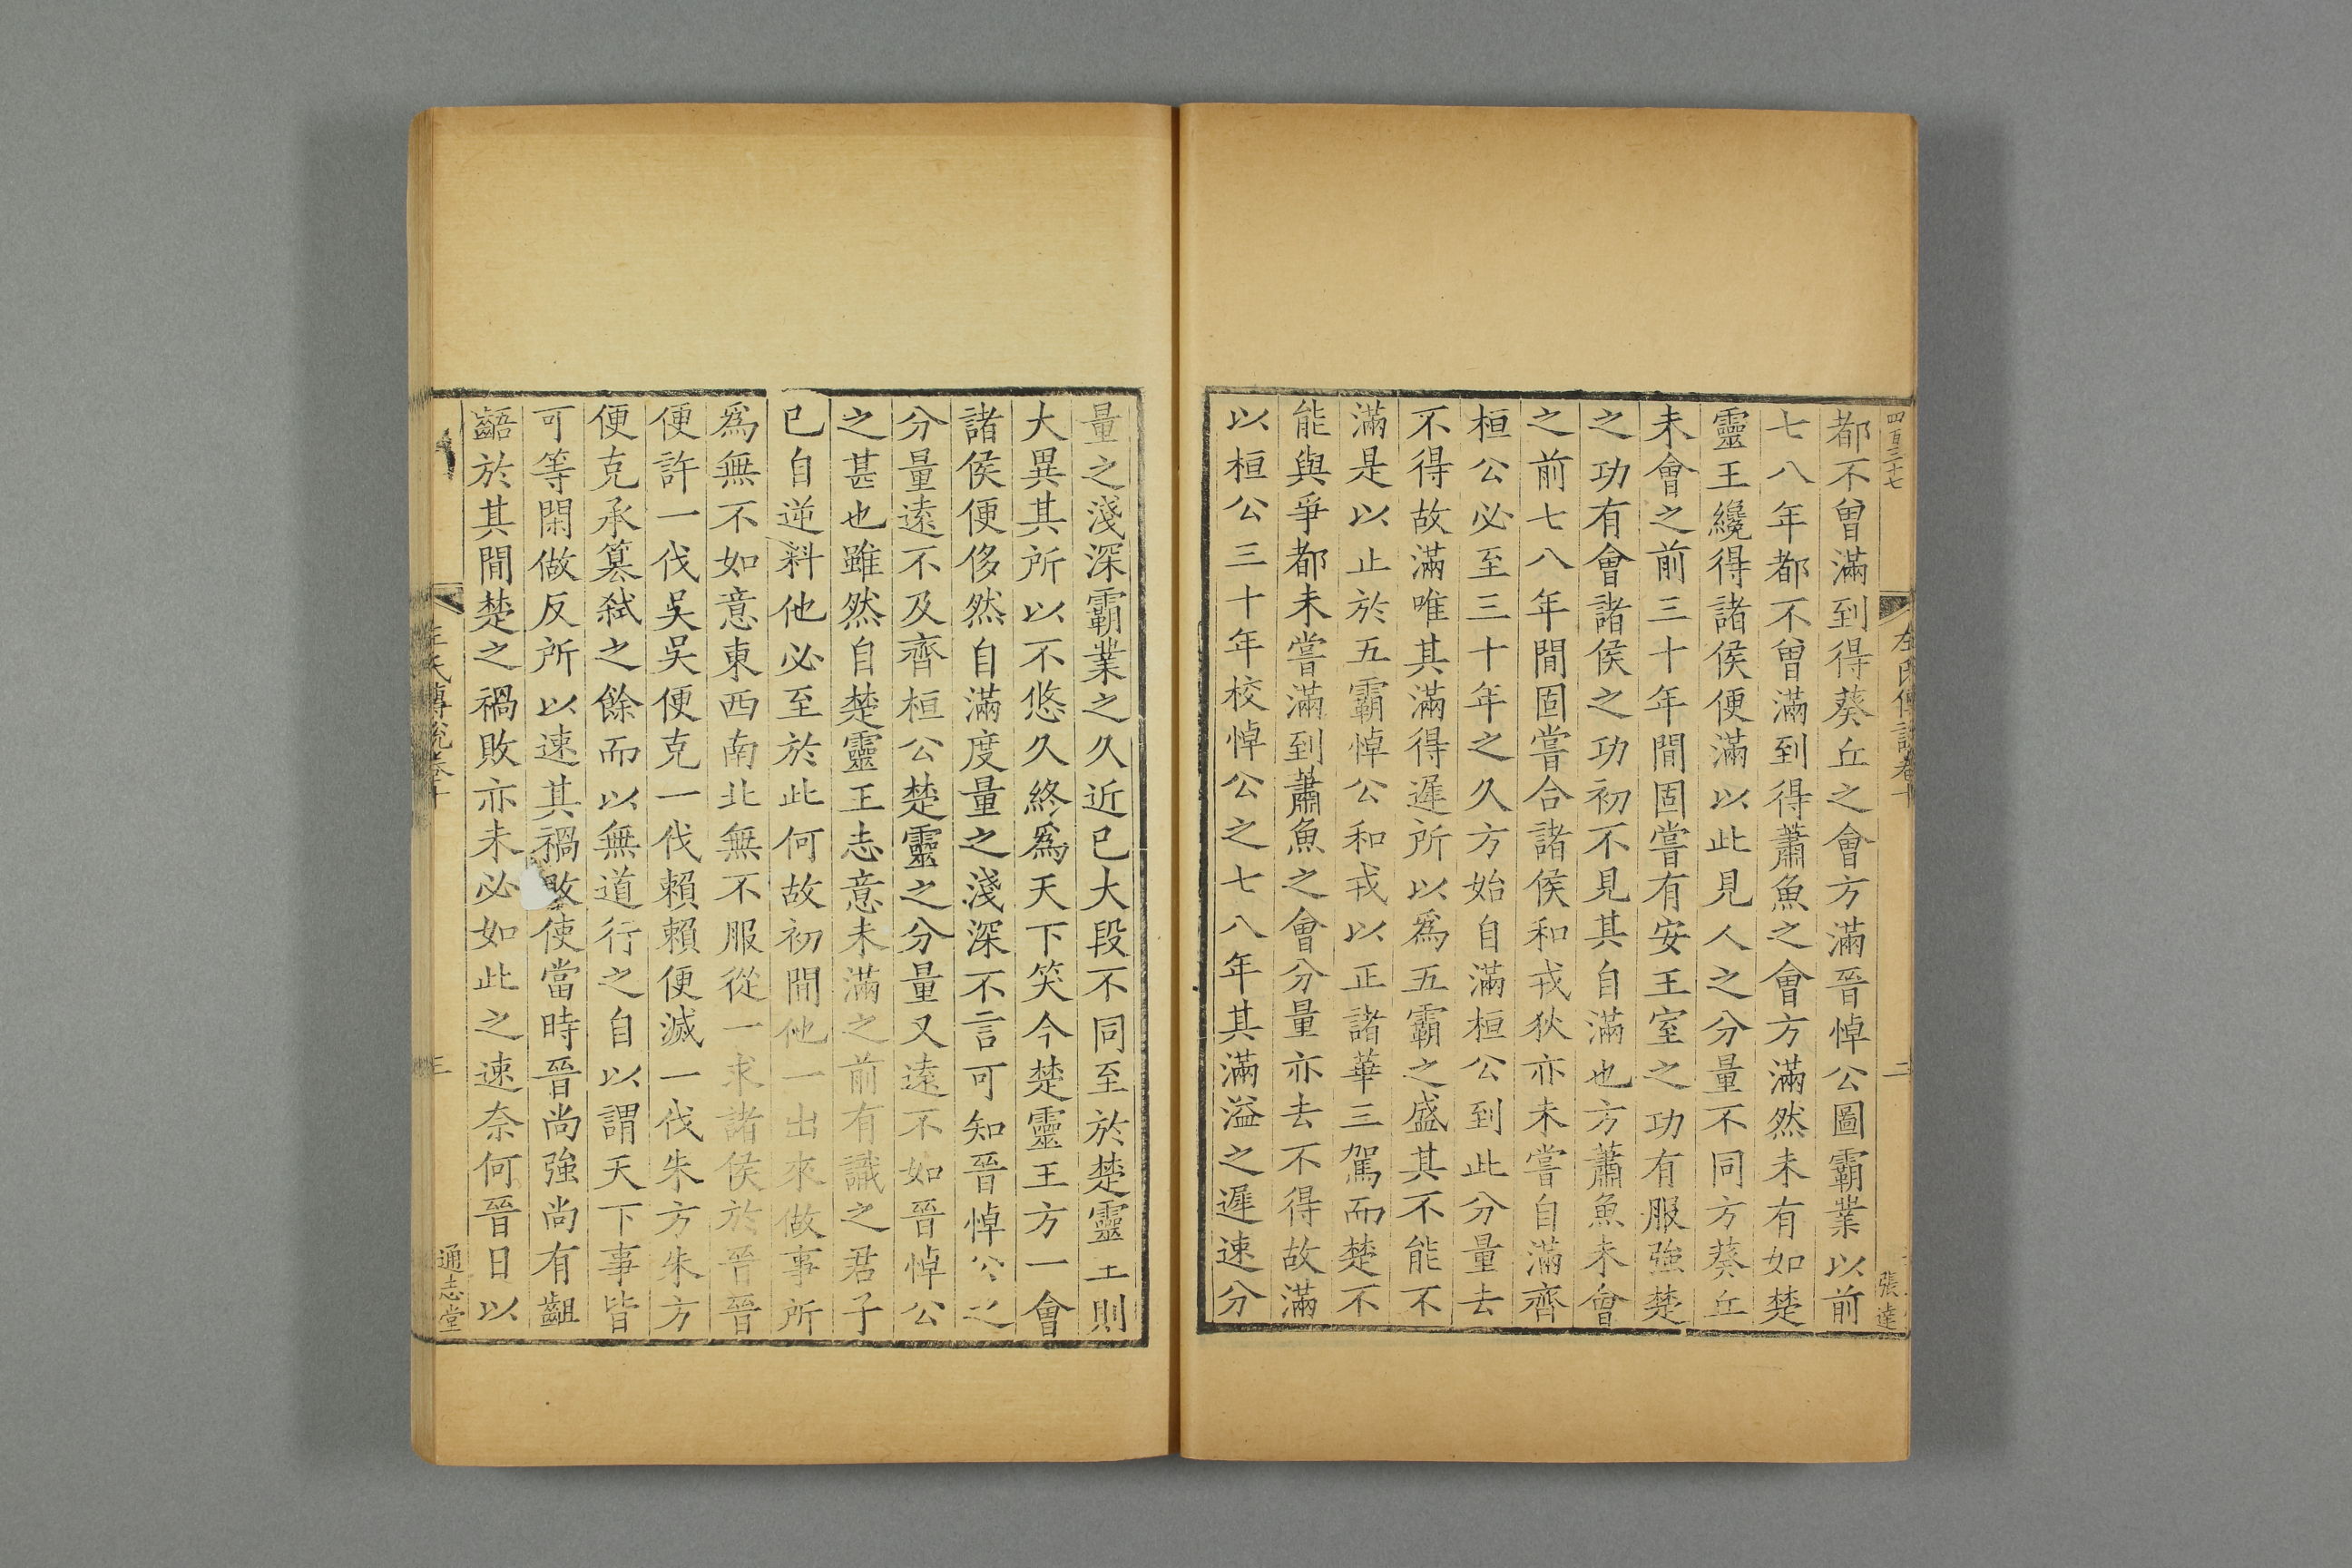 四百三十七
左氏傳說卷十
二
張達
都不曾滿到得葵丘之會方滿晉悼公圖霸業以前
七八年都不曾滿到得蕭魚之會方滿然未有如楚
靈王纔得諸侯便滿以此見人之分量不同方葵丘
未會之前三十年間固嘗有安王室之功有服強楚
之功有會諸侯之功初不見其自滿也方蕭魚未會
之前七八年間固嘗合諸侯和戎狄亦未嘗自滿齊
桓公必至三十年之久方始自滿桓公到此分量去
不得故滿唯其滿得遲所以爲五霸之盛其不能不
滿是以止於五霸悼公和戎以正諸華三駕而楚不
能與爭都未嘗滿到蕭魚之會分量亦去不得故滿
以桓公三十年校悼公之七八年其滿溢之遲速分
量之淺深霸業之久近已大段不同至於楚靈王則
大異其所以不悠久終爲天下笑今楚靈王方一會
諸侯便侈然自滿度量之淺深不言可知晉悼公之
分量遠不及齊桓公楚靈之分量又遠不如晉悼公
之甚也雖然自楚靈王志意未滿之前有識之君子
已自逆料他必至於此何故初間他一出來做事所
爲無不如意東西南北無不服從一求諸侯於晉晉
便許一伐吳吳便克一伐賴賴便滅一伐朱方朱方
便克承篡弒之餘而以無道行之自以謂天下事皆
可等閑做反所以速其禍敗使當時晉尚強尚有齟
齬於其間楚之禍敗亦未必如此之速奈何晉日以
左氏傳說卷十
三
通志堂